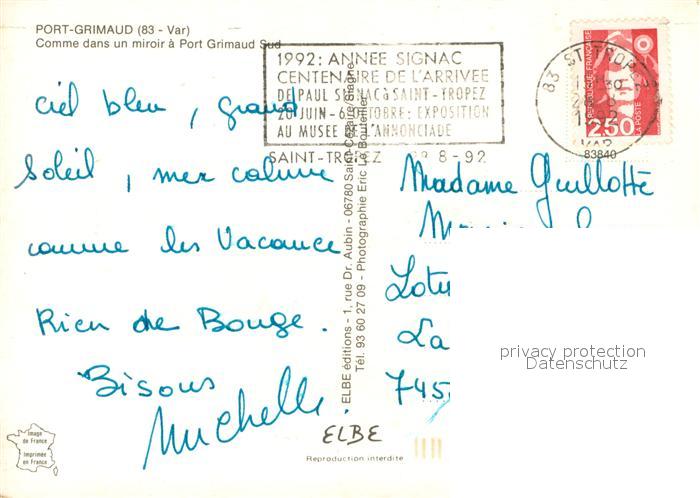 PORT-GRIMAUD (83 - Var)
Comme dans un miroir à Port Grimaud Sud
1992: ANNEE SIGNAC
CENTENAIRE DE L'ARRIVEE
DE PAUL SIGNAC à SAINT-TROPEZ
20 JUIN - 6 OCTOBRE: EXPOSITION
AU MUSEE DE L'ANNONCIADE
SAINT-TROPEZ 8-92
83 ST TROP
VAR
83840
REPUBLIQUE FRANÇAISE
2,50
LA POSTE
ciel bleu, grand
Soleil, mer calme
comme les Vacance
Rien de Bouge.
Bisous
Michelle.
ELBE éditions - 1, rue Dr. Aubin - 06780 Saint-Cézaire/Siagne
Tél. 93 60 27 09 - Photographie Eric Le Bouteiller
Madame Guillotte
Lotu
La
745
privacy protection
Datenschutz
Image
de France
Imprimée
en France
ELBE
Reproduction interdite